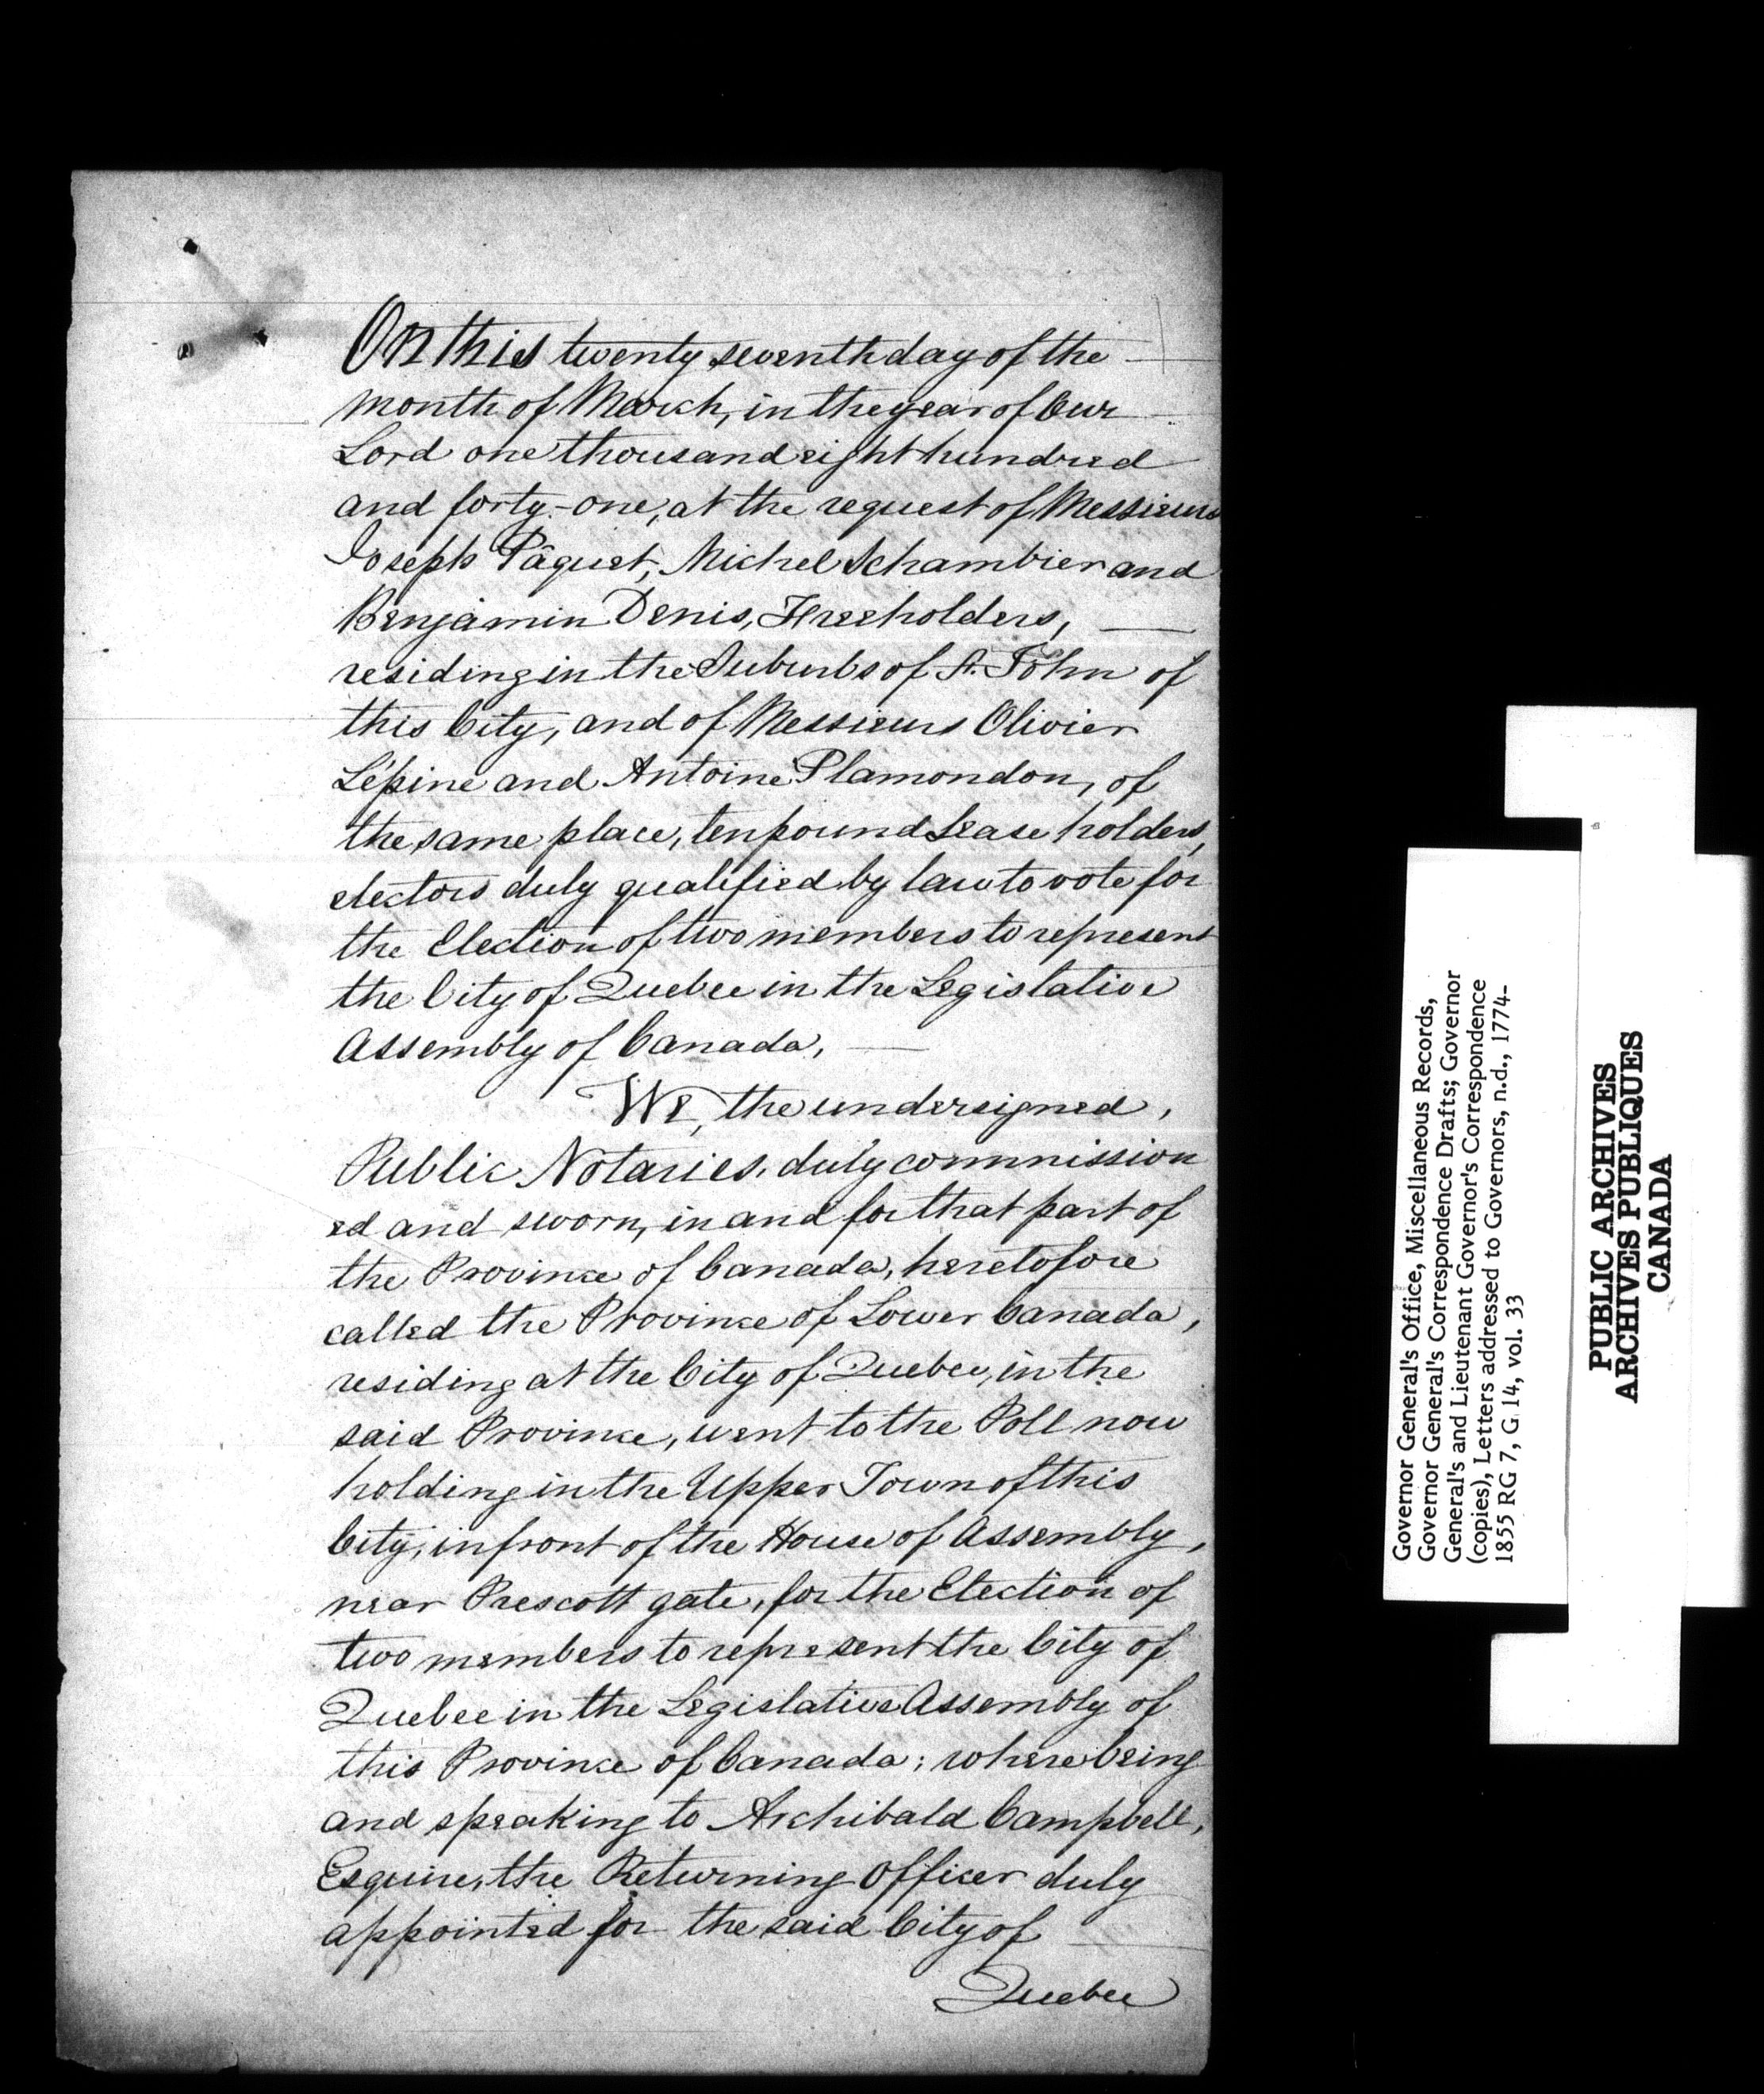 On this twenty seventh day of the
month of March, in the year of Our
Lord one thousand eight hundred
and forty-one, at the request of Messieurs
Joseph Pâquet, Michel Schambier and
Benjamin Denis, Freeholders,
residing in the Suburbs of St. John of
this City, and of Messieurs Olivier
Lépine and Antoine Plamondon, of
the same place, ten pound Lease holders,
electors duly qualified by law to vote for
the Election of two members to represent
the City of Quebec in the Legislative
Assembly of Canada,
We, the undersigned,
Public Notaries, duly commission
ed and sworn, in and for that part of
the Province of Canada, heretofore
called the Province of Lower Canada,
residing at the City of Quebec, in the
said Province, went to the Poll now
holding in the Upper Town of this
City, in front of the House of Assembly,
near Prescott gate, for the Election of
two members to represent the City of
Quebec in the Legislative Assembly of
this Province of Canada; where being
and speaking to Archibald Campbell,
Esquire, the Returning Officer duly
appointed for the said City of
Quebec
Governor General's Office, Miscellaneous Records,
Governor General's Correspondence Drafts; Governor
General's and Lieutenant Governor's Correspondence
(copies), Letters addressed to Governors, n.d., 1774-
1855 RG 7, G 14, vol. 33
PUBLIC ARCHIVES
ARCHIVES PUBLIQUES
CANADA